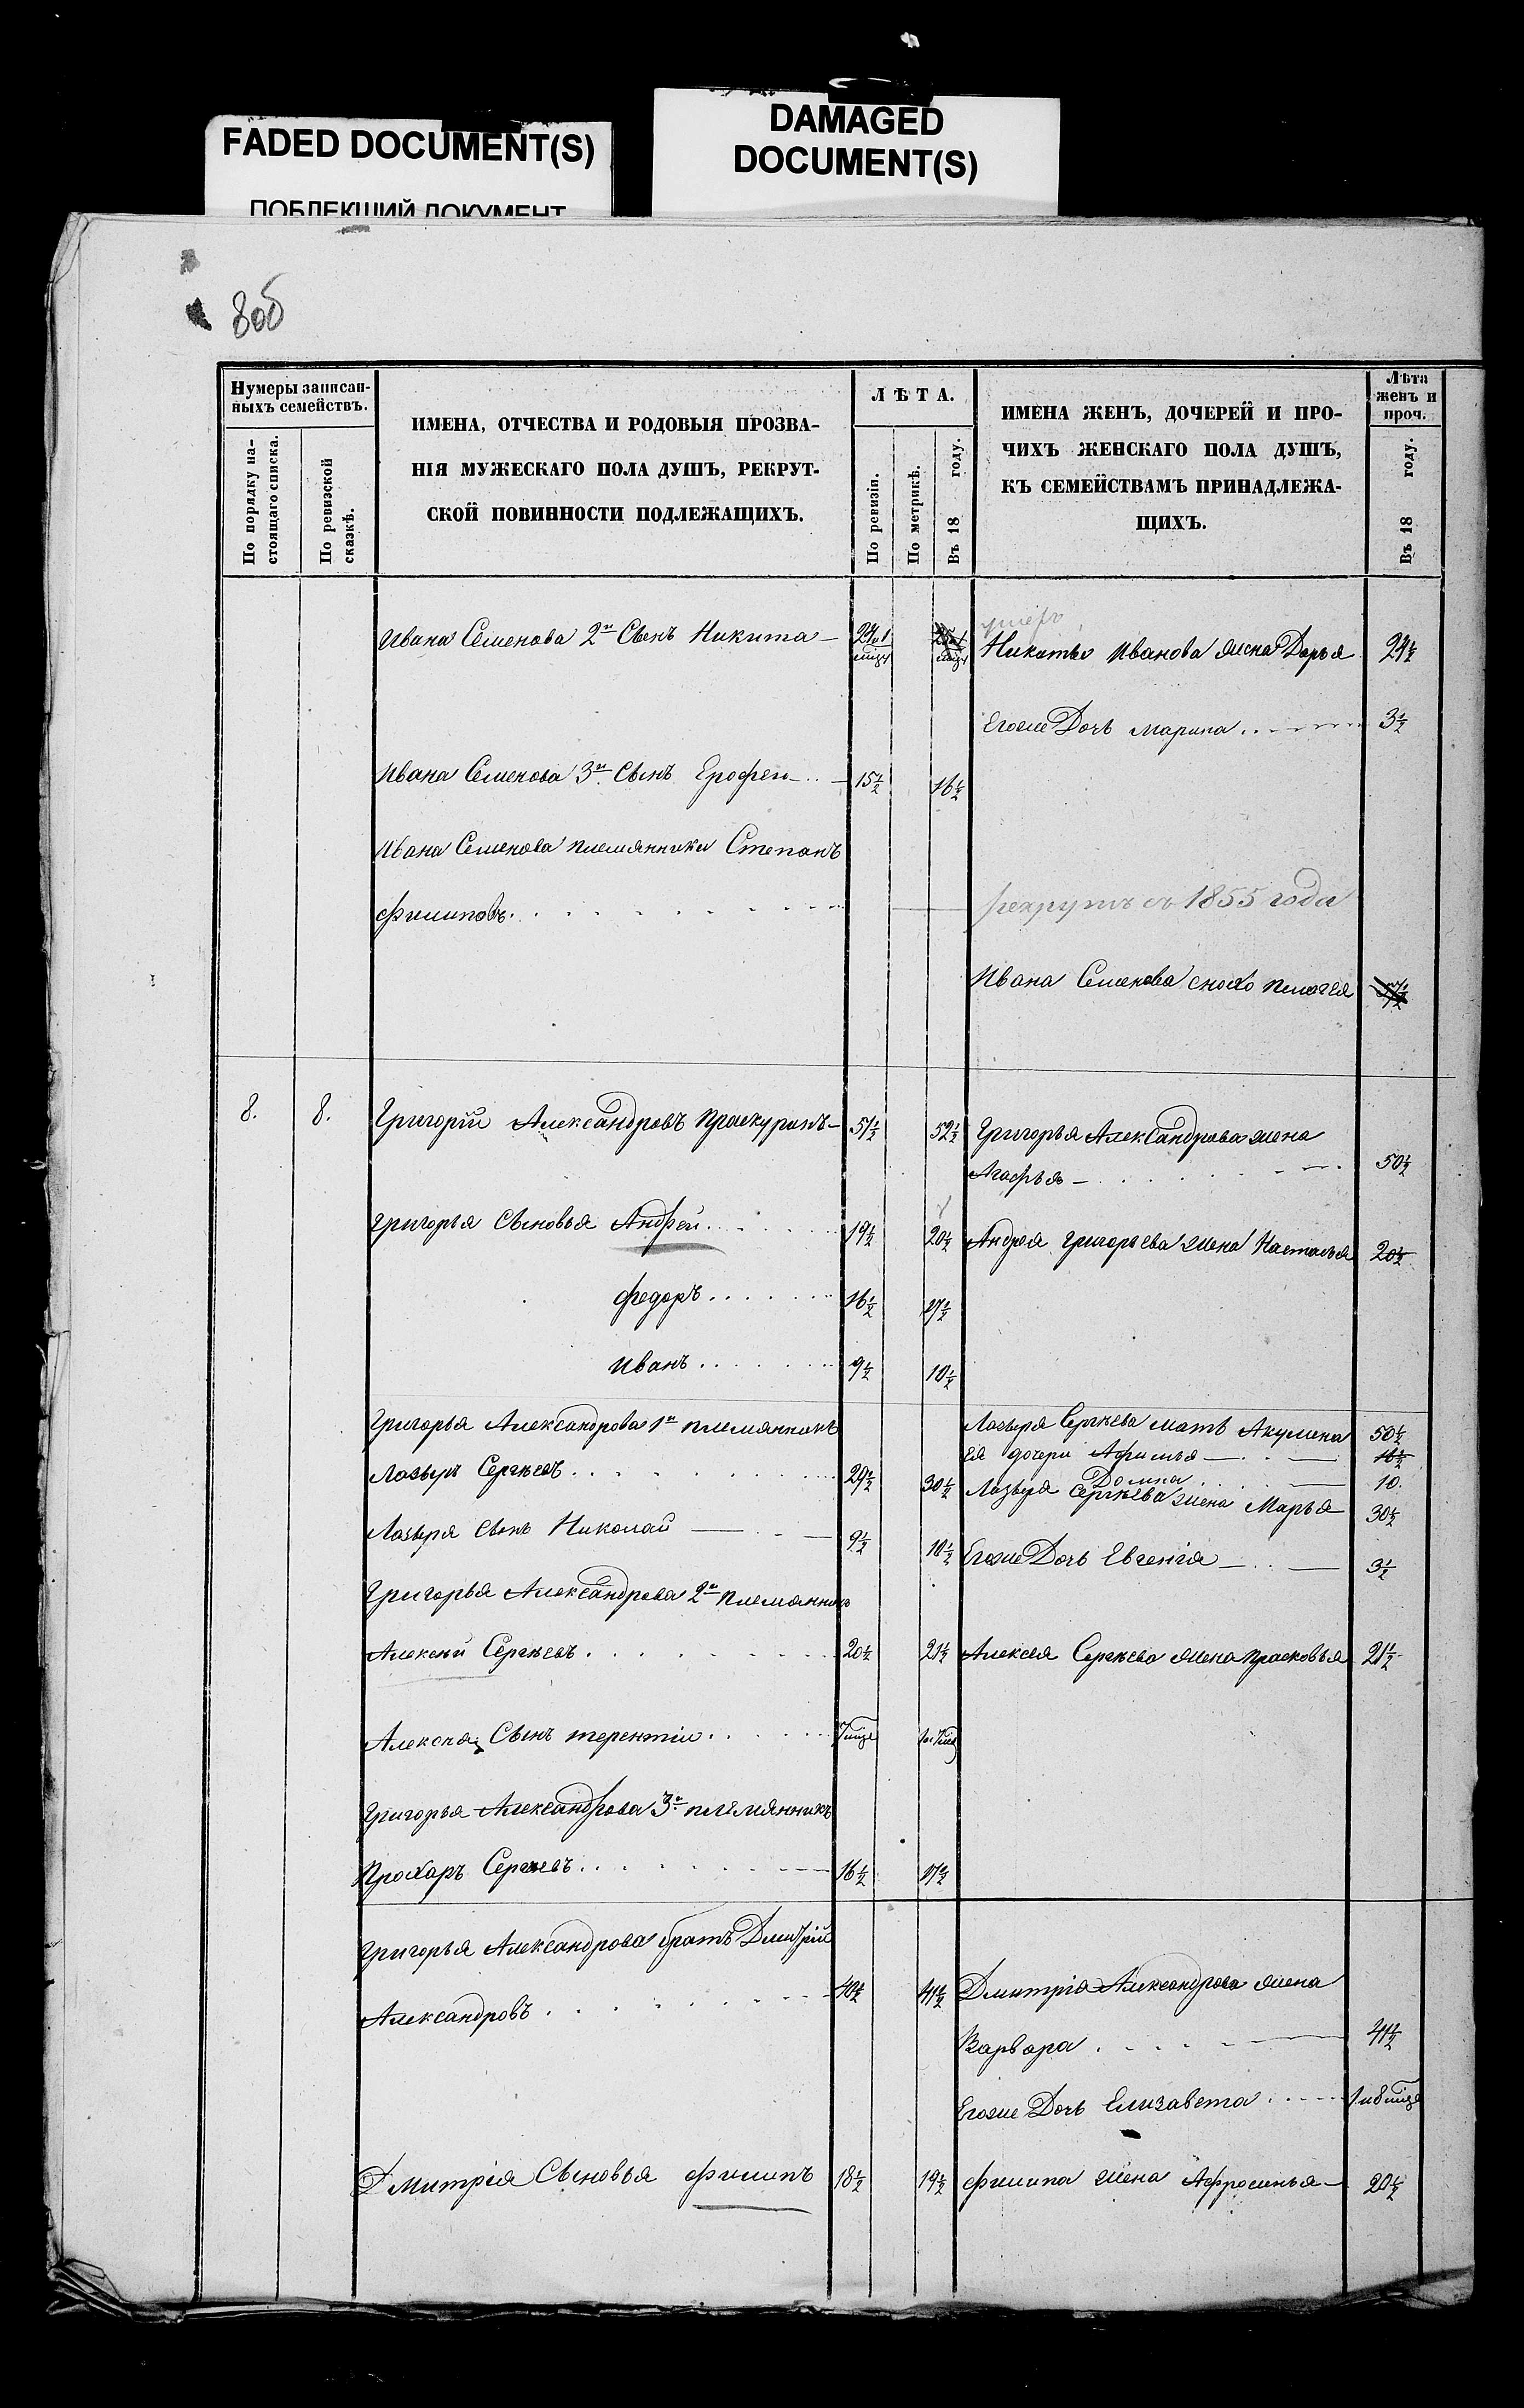 FADED DOCUMENT(S)
ПОБЛЕКШИЙ ДОКУМЕНТ
DAMAGED
DOCUMENT(S)
8об
Нумеры записан-
ныхъ семействъ.
По порядку на-
стоящаго списка.
По ревизской
сказкѣ.
ИМЕНА, ОТЧЕСТВА И РОДОВЫЯ ПРОЗВА-
НІЯ МУЖЕСКАГО ПОЛА ДУШЪ, РЕКРУТ-
СКОЙ ПОВИННОСТИ ПОДЛЕЖАЩИХЪ.
ЛѢТА.
По ревизіи.
По метрикѣ.
Въ 18 году.
ИМЕНА ЖЕНЪ, ДОЧЕРЕЙ И ПРО-
ЧИХЪ ЖЕНСКАГО ПОЛА ДУШЪ,
КЪ СЕМЕЙСТВАМЪ ПРИНАДЛЕЖА-
ЩИХЪ.
Лѣта
женъ и
проч.
Въ 18 году.
умеръ
Ивана Семенова 2й Сынъ Никита Никиты Иванова жена Дарья 24½
Егоже Дочь Марина 3½
Ивана Семенова 3й Сынъ Ерофей 15½ 16½
Ивана Семенова племянники Степанъ
Филиповъ рекрутъ съ 1855 года
Ивана Семенова сноха Пелагея
8. 8. Григорій Александровъ Праскуринъ 51½ 52½ Григорья Александрова жена
Агафья 50½
Григорья Сыновья Андрей 19½ 20½ Андрея Григорьева жена Настасья 20½
Федоръ 16½ 17½
Иванъ 9½ 10½
Григорья Александрова 1й племянникъ Лазыря Сергѣева мать Акулина 50½
Ея дочери Афимья
Домна 10.
Лазырь Сергѣевъ 29½ 30½ Лазыря Сергѣева жена Марья 30½
Лазыря Сынъ Николай 9½ 10½ Егоже Дочь Евгенія 3½
Григорья Александрова 2й племянникъ
Алексѣй Сергѣевъ 20½ 21½ Алексея Сергѣева жена Прасковья 21½
Алексѣя Сынъ Терентій
Григорья Александрова 3й племянникъ
Прохаръ Сергѣевъ 16½ 17½
Григорья Александрова братъ Дмитрій
Александровъ 40½ 41½ Дмитрія Александрова жена
Варвара 41½
Егоже Дочь Елизавета
Дмитрія Сыновья Филипъ 18½ 19½ Филипа жена Афросинья 20½